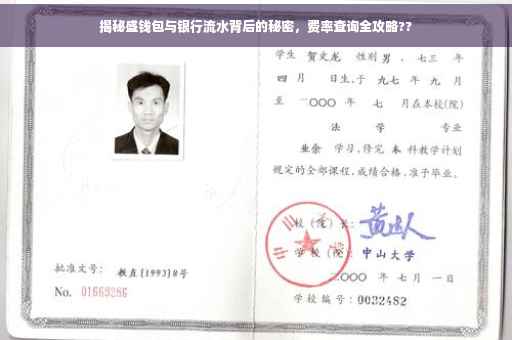 揭秘盛钱包与银行流水背后的秘密，费率查询全攻略??
学生 贺文龙 性别 男，七三 年
四 月 日生,于 九七 年 九 月
至 二〇〇〇 年 七 月在本校(院)
法 学 专业
业余 学习,修完 本 科教学计划
规定的全部课程,成绩合格,准予毕业。
校 (院) 长:
学 校 (院): 中山大学
二〇〇〇 年 七 月 一 日
批准文号: 教直[1993]8号
No. 01669286
学校编号: 0032482